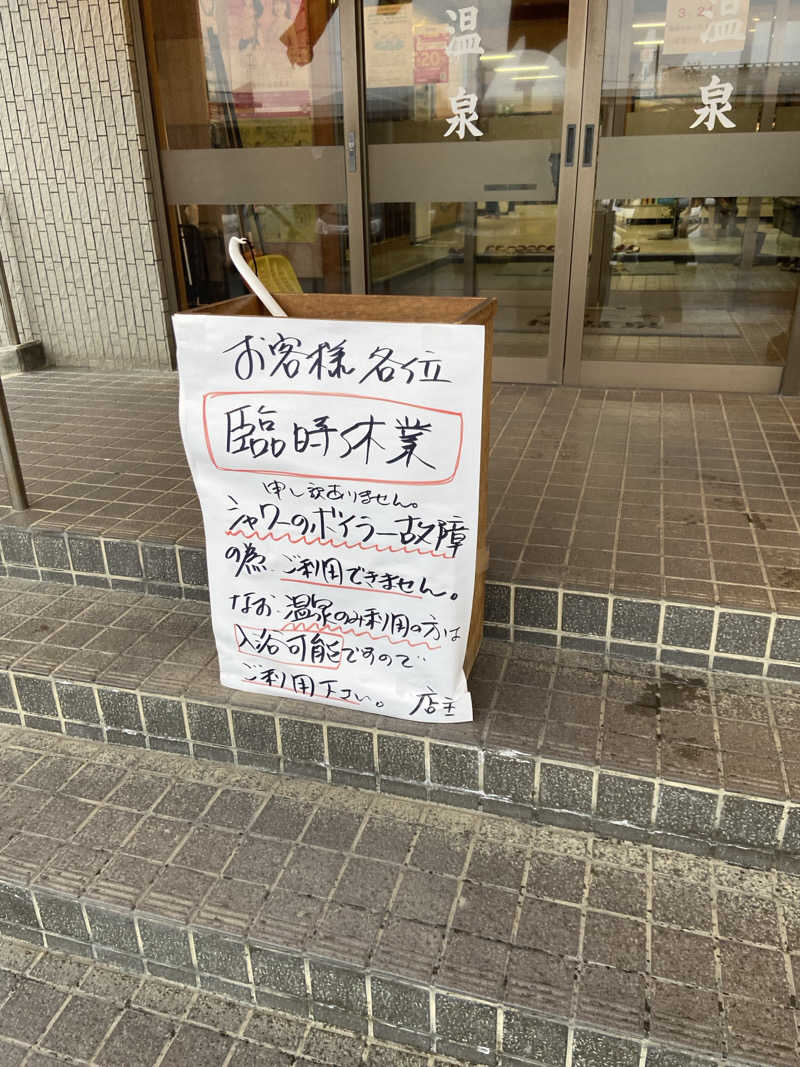 温泉
温泉
お客様各位
臨時休業
申し訳ありません。
シャワーのボイラー故障
の為ご利用できません。
なお温泉のみ利用の方は
入浴可能ですので
ご利用下さい。 店主